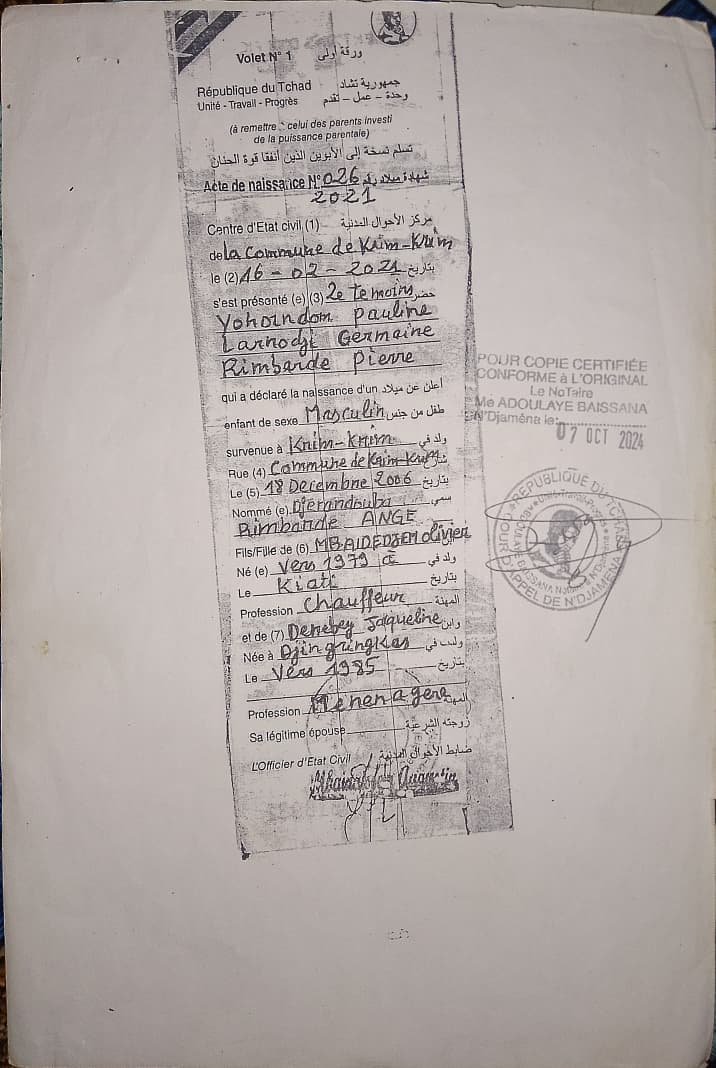 Volet N° 1 ورقة أولى
République du Tchad جمهورية تشاد
Unité - Travail - Progrès وحدة - عمل - تقدم
(à remettre à celui des parents investi
de la puissance parentale)
تسلم نسخة إلى الأبوين الذين
Acte de naissance N° 026 شهادة ميلاد رقم
2021
Centre d'Etat civil (1) مركز الأحوال المدنية
de la Commune de Krim-Krim
le (2) 16-02-2021 بتاريخ
s'est présenté (e) (3) 2e temoins حضر
Yohoindom Pauline
Larnodji Germaine
Rimbarde Pierre
qui a déclaré la naissance d'un أعلن عن ميلاد
enfant de sexe Masculin طفل من جنس
survenue à Krim-Krim ولد في
Rue (4) Commune de Krim-Krim
Le (5) 18 Decembre 2006 بتاريخ
Nommé (e) Djerandouba سمي
Rimbande ANGE
Fils/Fille de (6) MBAIDEDJEM olivier
Né (e) Vers 1979 à ولد في
Le Kiati بتاريخ
Profession Chauffeur المهنة
et de (7) Denebey Jaqueline وابن
Née à ولدت في
Le Vers 1985 بتاريخ
Profession Menenagere المهنة
Sa légitime épouse زوجته الشرعية
L'Officier d'Etat Civil ضابط الأحوال المدنية
POUR COPIE CERTIFIÉE
CONFORME à L'ORIGINAL
Le NoTaire
Me ADOULAYE BAISSANA
N'Djamèna le:
07 OCT 2024
REPUBLIQUE DU TCHAD
COUR D'APPEL DE N'DJAMENA